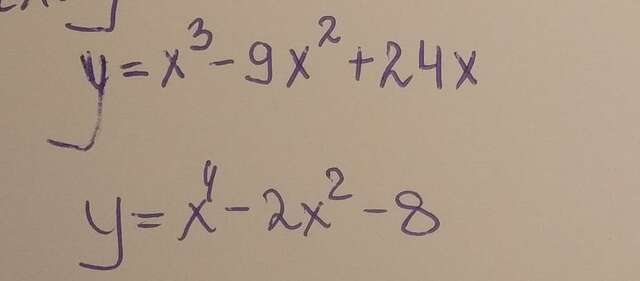 y = x³ - 9x² + 24x
y = x⁴ - 2x² - 8